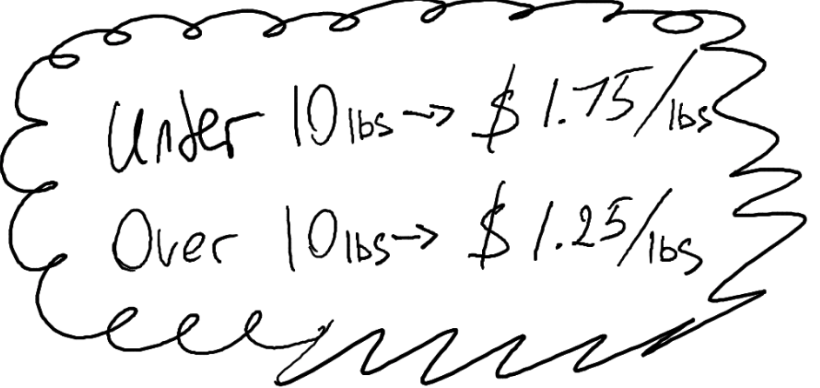 Under 10 lbs → $ 1.75/lbs
Over 10 lbs → $ 1.25/lbs